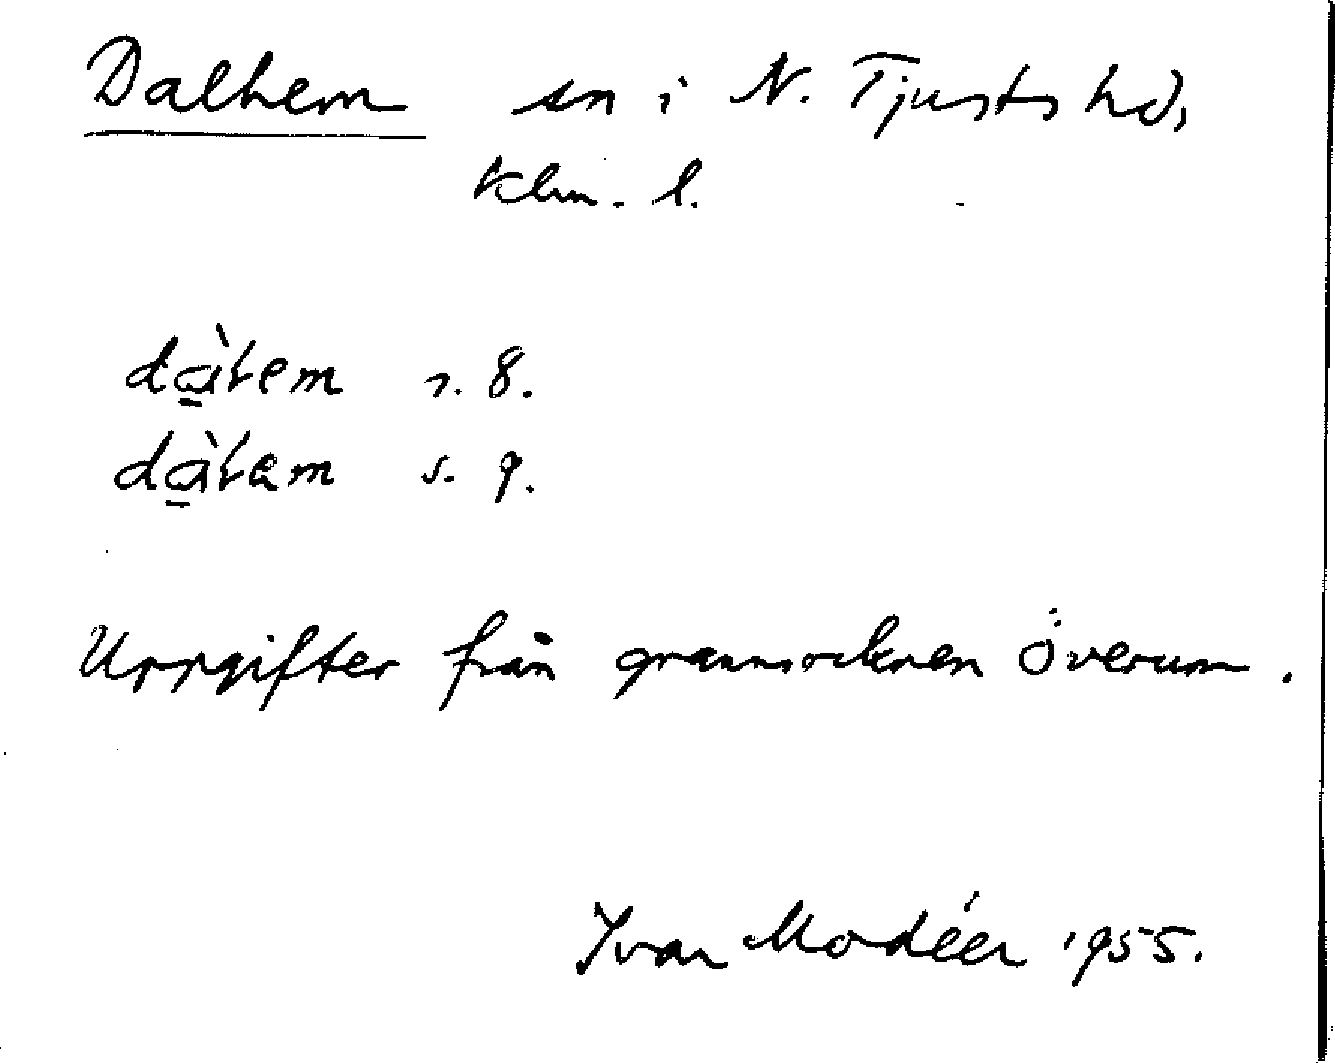 Dalhem sn i N. Tjusts hd,
Klm. l.
dàlem s. 8.
dàlam s. 9.
Uppgifter från grannsocknen Överum.
Ivar Modéer 1955.